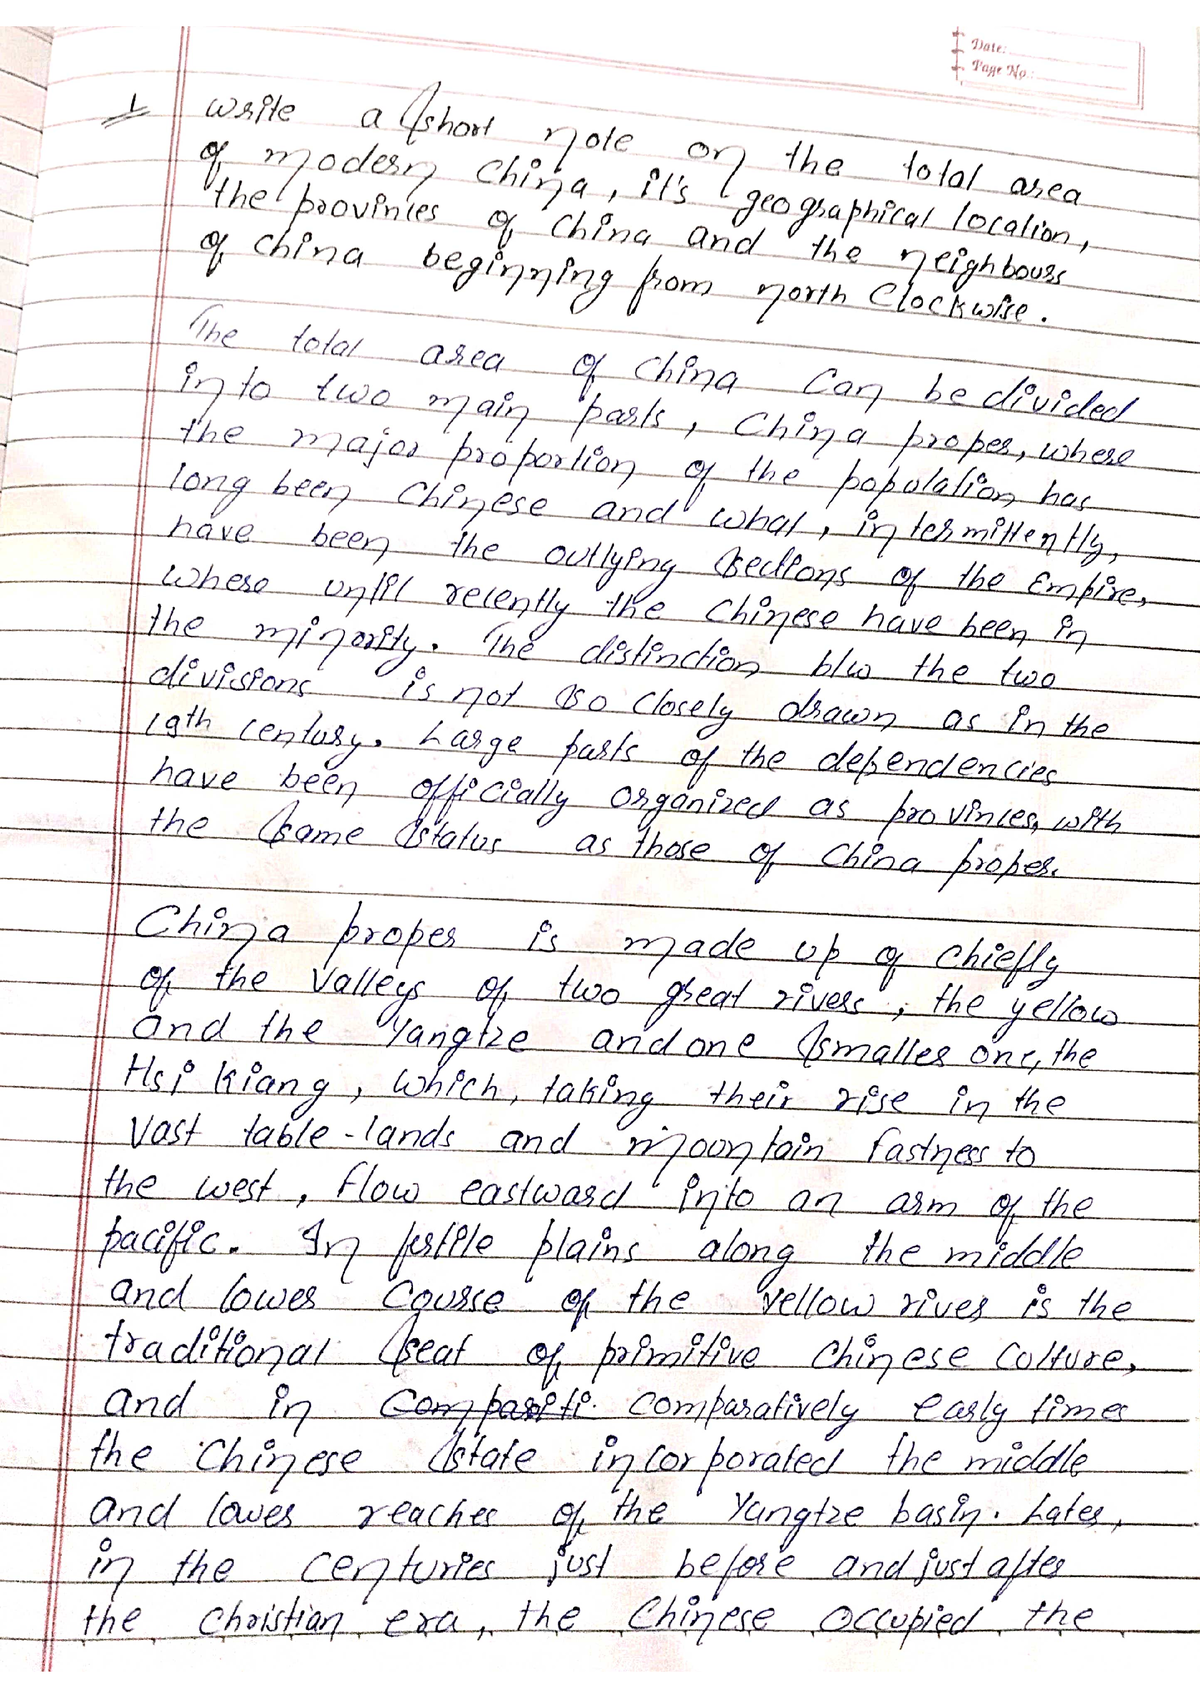 Date:
Page No.:
1 write a short note on the total area
of modern China, it's geographical location,
the provinies of China and the neighbours
of china beginning from north clockwise.
The total area of China can be divided
into two main parts, China proper, where
the major proportion of the population has
long been Chinese and what, intermittently,
have been the outlying sections of the Empire,
where until recently the Chinese have been in
the minority. The distinction b/w the two
divisions is not so closely drawn as in the
19th century. Large parts of the dependencies
have been officially organized as provinies, with
the same status as those of China proper.
China proper is made up of chiefly
of the valleys of two great rivers, the yellow
and the Yangtze and one smaller one, the
Hsi kiang, which, taking their rise in the
vast table-lands and mountain fastness to
the west, flow eastward into an arm of the
pacific. In fertile plains along the middle
and lower course of the Yellow river is the
traditional seat of primitive Chinese Culture,
and in Compariti. comparatively early times
the Chinese state incorporated the middle
and lower reaches of the Yangtze basin. Later,
in the centuries just before and just after
the Christian era, the Chinese occupied the